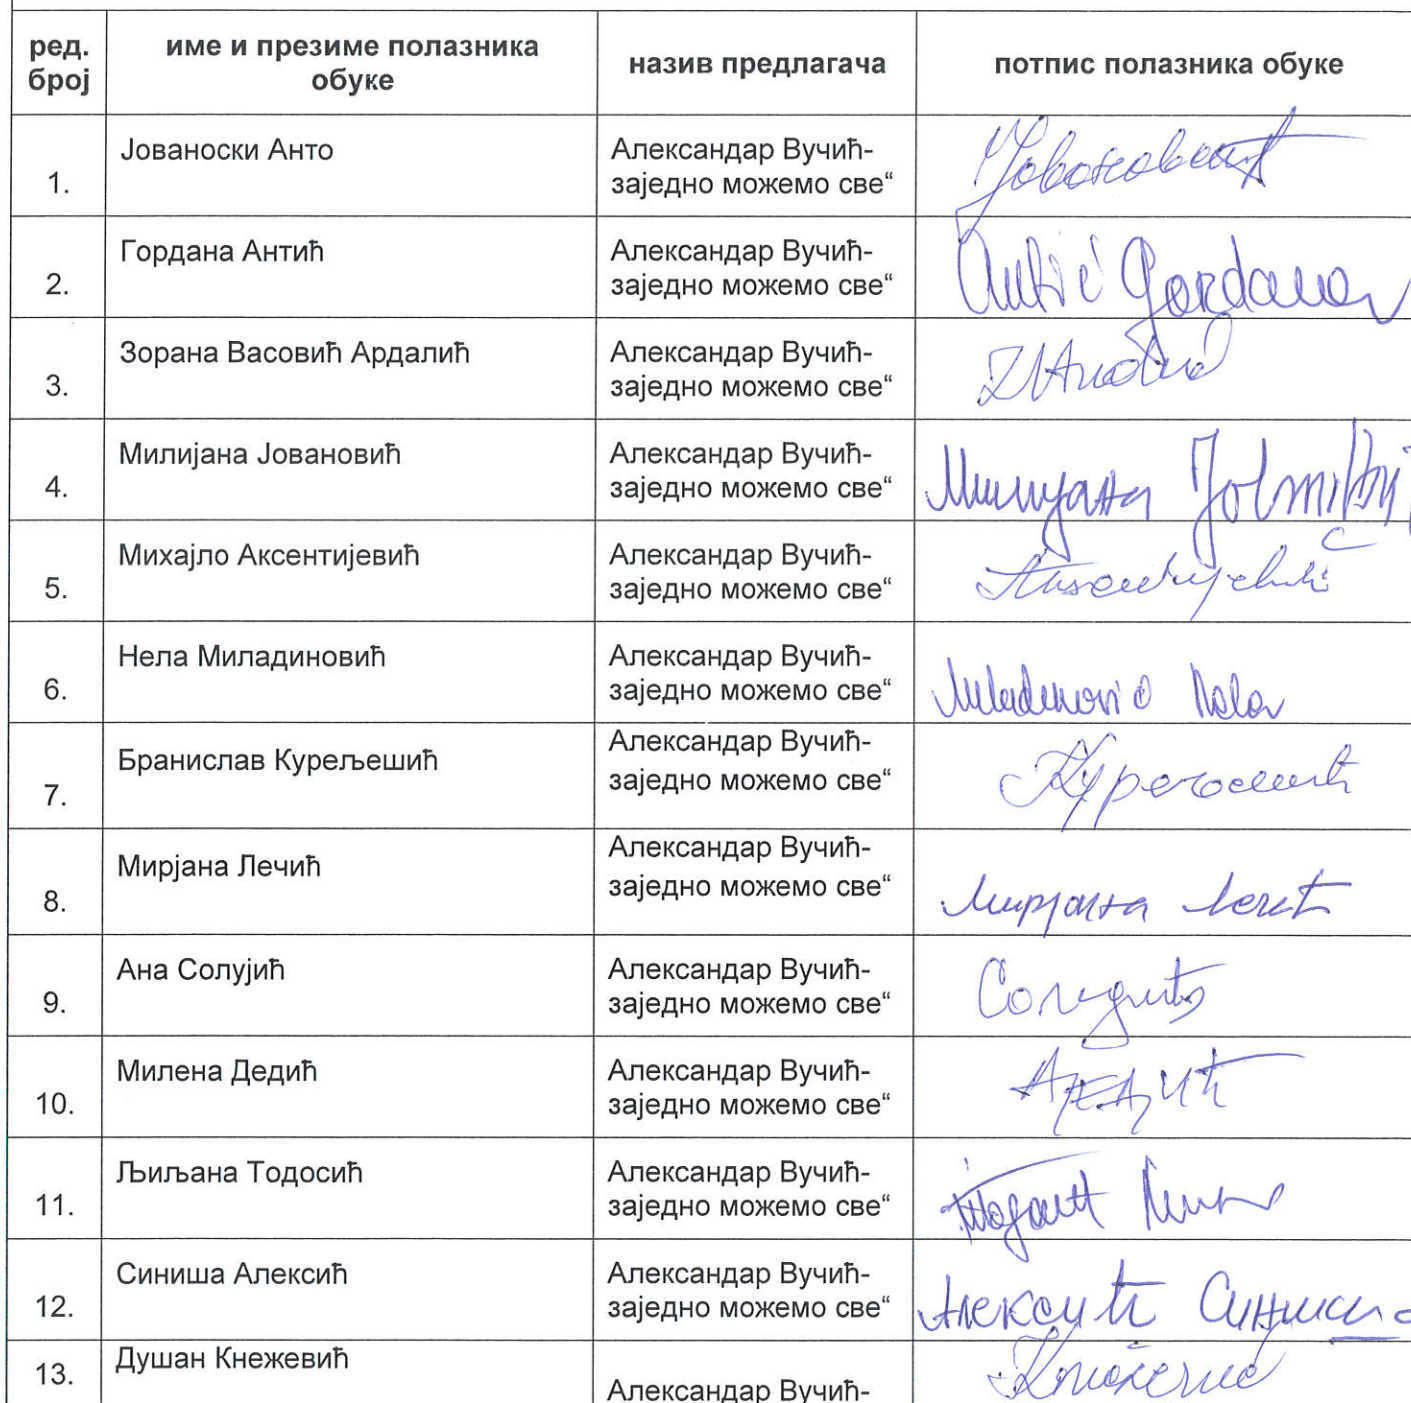 ред. број
име и презиме полазника обуке
назив предлагача
потпис полазника обуке
1.
Јованоски Анто
Александар Вучић-
заједно можемо све“
2.
Гордана Антић
Александар Вучић-
заједно можемо све“
Antić Gordana
3.
Зорана Васовић Ардалић
Александар Вучић-
заједно можемо све“
4.
Милијана Јовановић
Александар Вучић-
заједно можемо све“
Милијана
5.
Михајло Аксентијевић
Александар Вучић-
заједно можемо све“
Аксентијевић
6.
Нела Миладиновић
Александар Вучић-
заједно можемо све“
7.
Бранислав Курељешић
Александар Вучић-
заједно можемо све“
8.
Мирјана Лечић
Александар Вучић-
заједно можемо све“
Мирјана Лечић
9.
Ана Солујић
Александар Вучић-
заједно можемо све“
Солујић
10.
Милена Дедић
Александар Вучић-
заједно можемо све“
11.
Љиљана Тодосић
Александар Вучић-
заједно можемо све“
12.
Синиша Алексић
Александар Вучић-
заједно можемо све“
Алексић Синиша
13.
Душан Кнежевић
Александар Вучић-